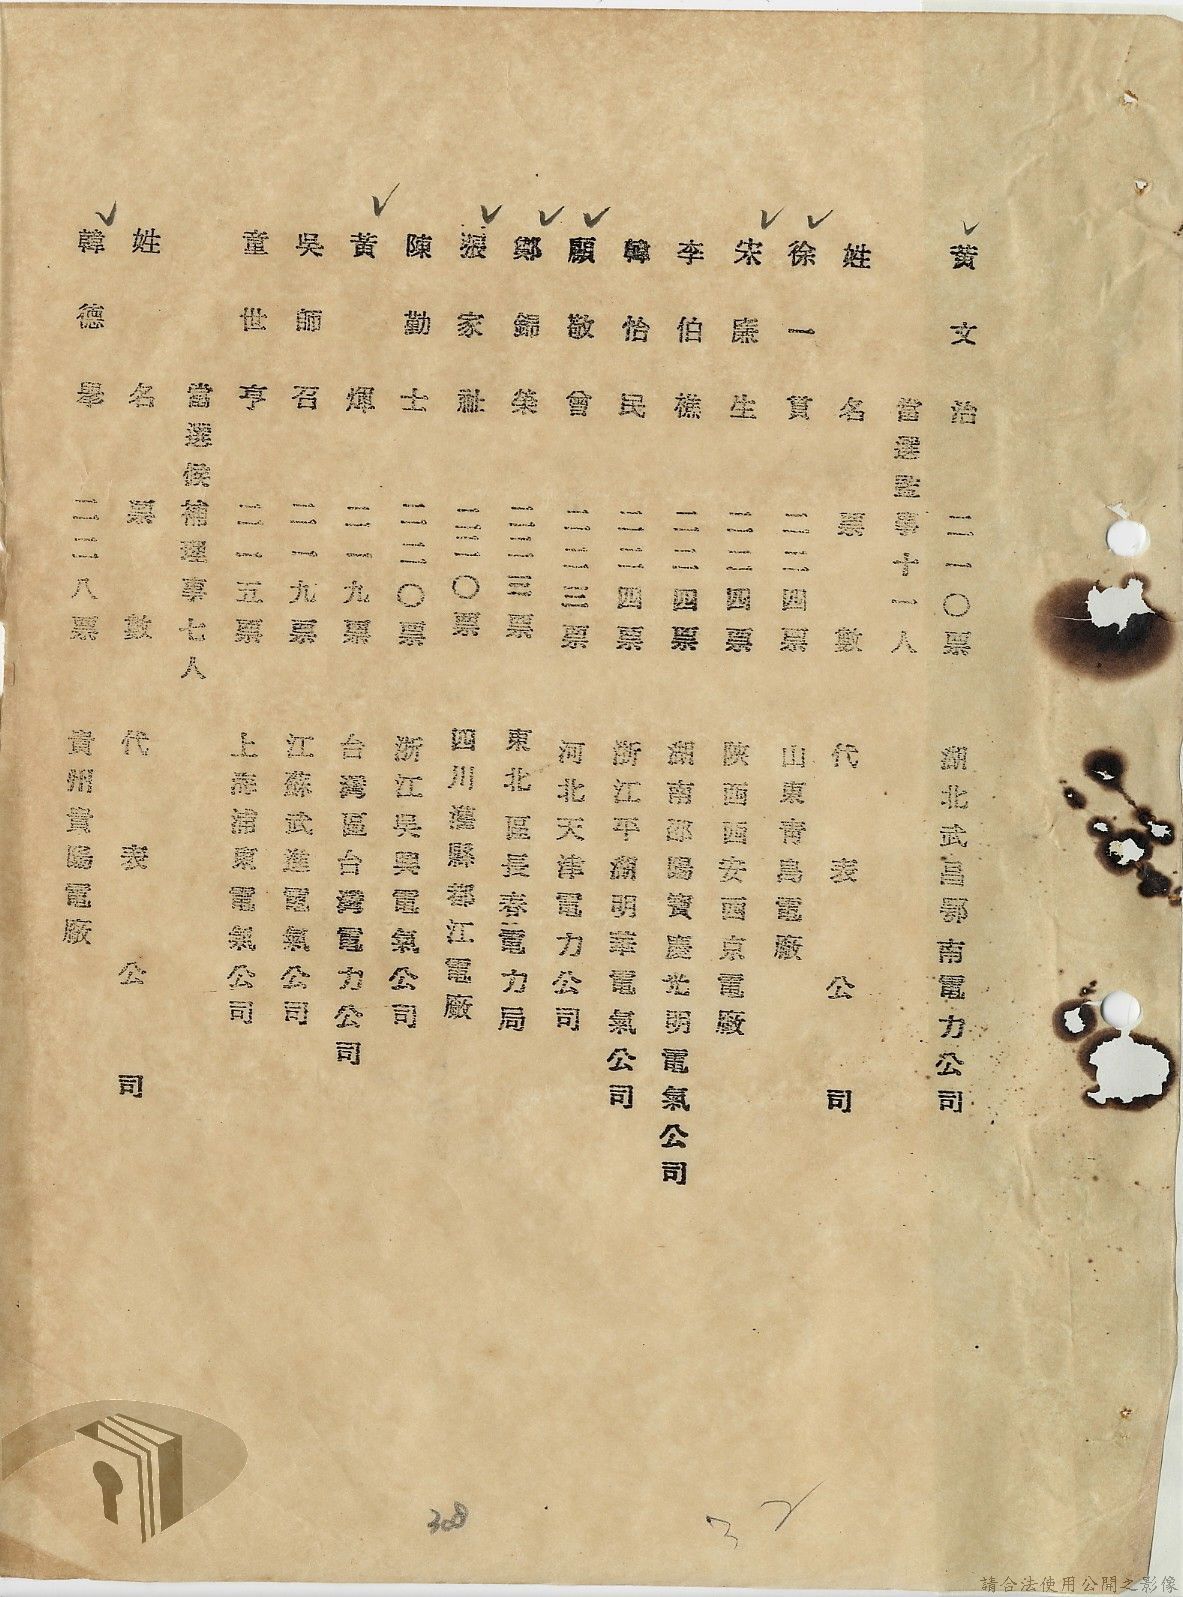 黃文治 二二一〇票 湖北武昌鄂南電力公司
當選監事十一人
姓名 票數 代表公司
徐一貫 二二二四票 山東青島電廠
宋廉生 二二二四票 陝西西安西京電廠
李伯樵 二二二四票 湖南邵陽寶慶光明電氣公司
韓怡民 二二二四票 浙江平湖明華電氣公司
顧敬曾 二二二三票 河北天津電力公司
鄭錦榮 二二二三票 東北區長春電力局
張家祉 二二二〇票 四川灌縣都江電廠
陳勤士 二二二〇票 浙江吳興電氣公司
黃煇 二二一九票 台灣區台灣電力公司
吳師召 二二一九票 江蘇武進電氣公司
童世亨 二二一五票 上海浦東電氣公司
當選候補理事七人
姓名 票數 代表公司
韓德舉 二二八票 貴州貴陽電廠
308
請合法使用公開之影像